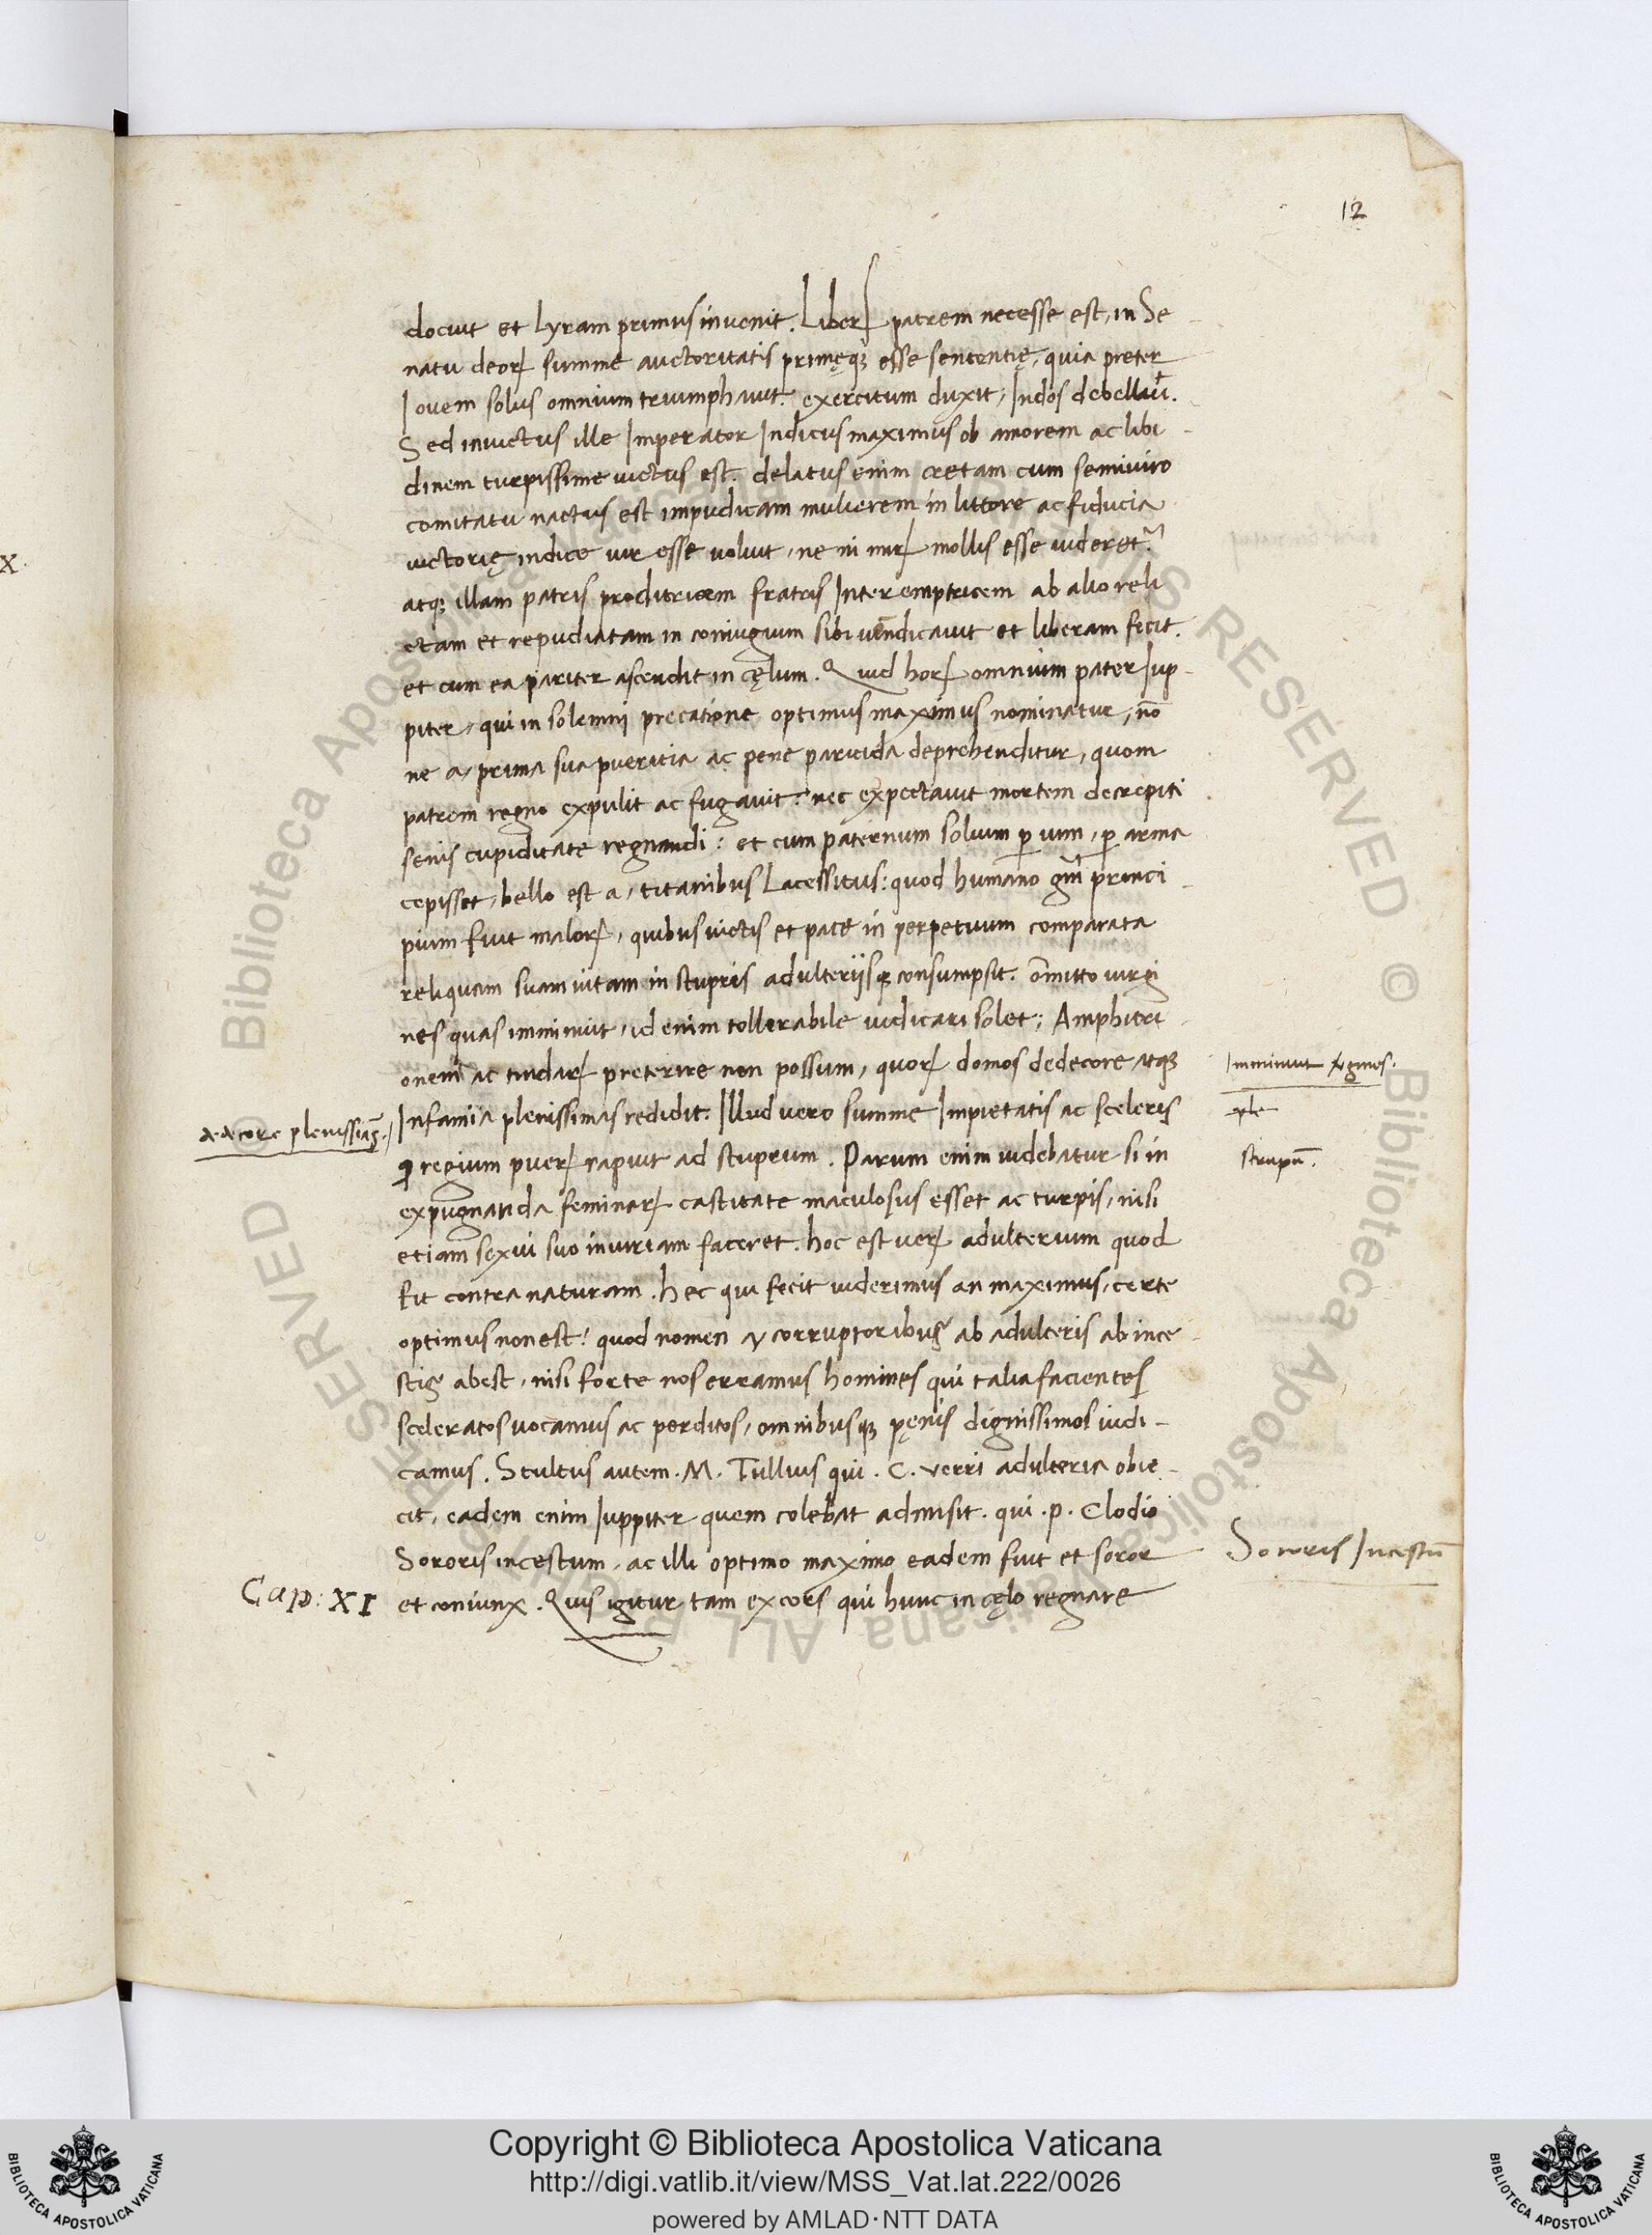 12
docuit et lyram primus inuenit. Liberꝝ patrem necesse est, in Se
natu deoꝝ summe auctoritatis primęqꝫ esse sententię, quia preter
Iouem solus omnium triumphauit. exercitum duxit, Indos debellauit.
Sed inuictus ille Imperator Indicus maximus ob amorem ac libi
dinem turpissime uictus est. delatus enim cretam cum semiuiro
comitatu nactus est impudicam mulierem in littore ac fiducia
uictorię indice uir esse uoluit, ne ni mirꝝ mollis esse uideret᷑.
atqꝫ illam patris proditricem fratris Interemptricem ab alio reli
ctam et repudiatam in coniugium sibi uendicauit et liberam fecit.
et cum ea pariter ascendit in cęlum. Quid hoꝝ omnium pater Iup-
piter, qui in solemni precatione optimus maximus nominatur, nō
ne a, prima sua pueritia ac pene paricida deprehenditur, quom
patrem regno expulit ac fugauit. nec expectauit mortem decrepiti
senis cupiditate regnandi: et cum paternum solium ꝑ uim, ꝑ arma
cepisset, bello est a, titanibus Lacessitus: quod humano gn̄i princi
pium fuit maloꝝ, quibus uictis et pace in perpetuum comparata
reliquam suam uitam in stupris adulterijsqꝫ consumpsit. om̄itto uirgi
nes quas imminuit, id enim tollerabile iudicari solet; Amphitri
onem ac tindaꝝ preterire non possum, quoꝝ domos dedecore atqꝫ
Infamia plenissimas redidit. Illud uero summe Impietatis ac sceleris
ꝙ regium pueꝝ rapuit ad stuprum. Parum enim uidebatur si in
expugnanda feminaꝝ castitate maculosus esset ac turpis, nisi
etiam sexui suo iniuriam faceret. hoc est ueꝝ adulterium quod
fit contra naturam. hec qui fecit uiderimus an maximus, certe
optimus non est! quod nomen a corruptoribus ab adulteris ab ince
stis abest, nisi forte nos erramus homines qui talia facientes
sceleratos uocamus ac perditos, omnibusqꝫ pęnis dignissimos iudi-
camus. Stultus autem .M. Tullius qui .C. verri adulteria obie-
cit, eadem enim Iuppiter quem colebat admisit. qui .p. Clodio
Sororis incestum, ac illi optimo maximo eadem fuit et soror
et coniunx. Quis igitur tam excors qui hunc in cęlo regnare
X.
plenissias.
Cap: XI
Imminuit
stupū.
Sororis Incestū
Copyright © Biblioteca Apostolica Vaticana
http://digi.vatlib.it/view/MSS_Vat.lat.222/0026
powered by AMLAD·NTT DATA
BIBLIOTECA APOSTOLICA VATICANA
BIBLIOTECA APOSTOLICA VATICANA
© Biblioteca Apostolica Vaticana ALL RIGHTS RESERVED © Biblioteca Apostolica Vaticana ALL RIGHTS RESERVED